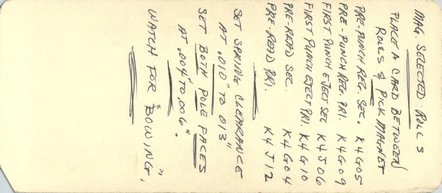 MAG. SELECTED ROLLS
PUNCH A CARD BETWEEN
ROLLS & PICK MAGNET
PRE-PUNCH REG. SEC. K4G05
PRE-PUNCH REG. PRI. K4G09
FIRST PUNCH EJECT SEC. K4J06
FIRST PUNCH EJECT PRI. K4G10
PRE-READ SEC. K4G04
PRE-READ PRI. K4J12
SET SPRING CLEARANCE
AT .010" TO .013"
SET BOTH POLE FACES
AT .004" TO .006".
WATCH FOR "BOWING."